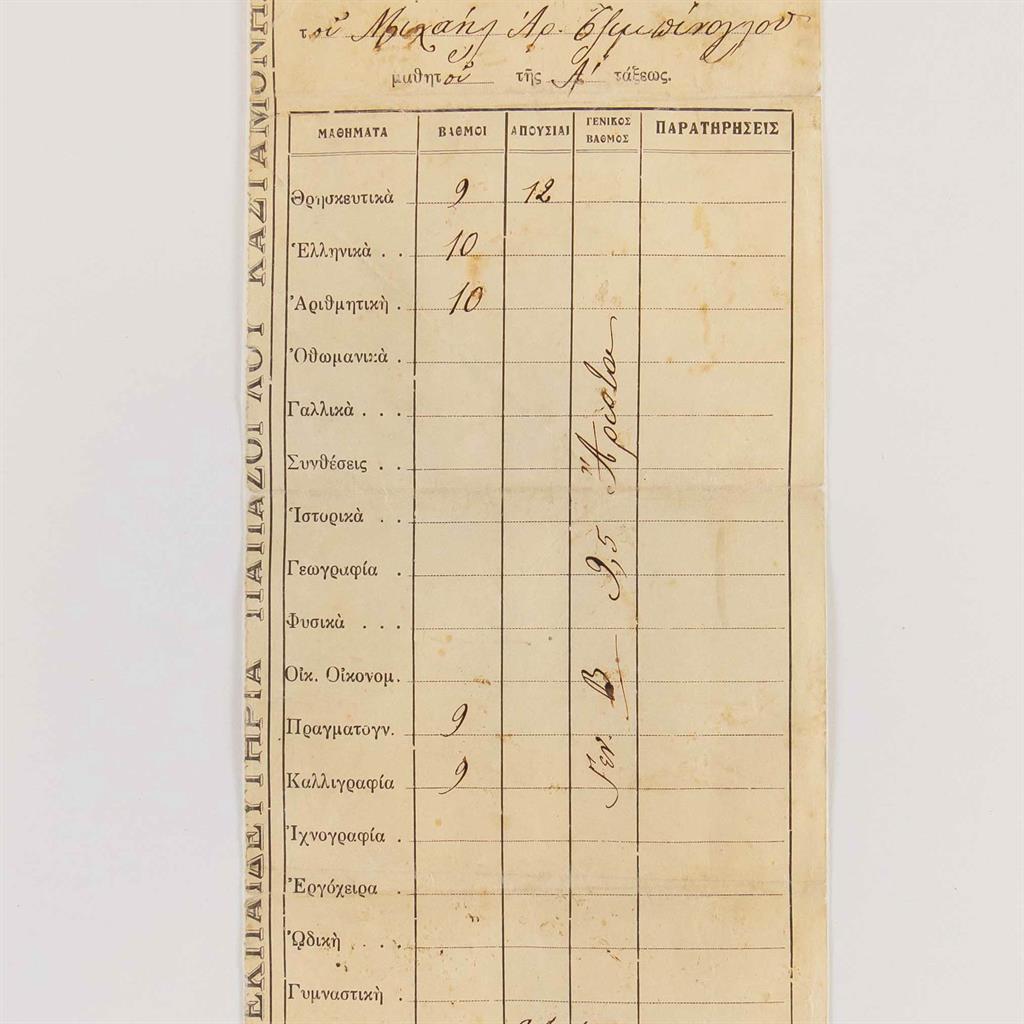 τοῦ Μιχαήλ Ἀρ.
μαθητοῦ τῆς Α' τάξεως.
ΜΑΘΗΜΑΤΑ ΒΑΘΜΟΙ ΑΠΟΥΣΙΑΙ ΓΕΝΙΚΟΣ ΒΑΘΜΟΣ ΠΑΡΑΤΗΡΗΣΕΙΣ
Θρησκευτικὰ 9 12
Ἑλληνικὰ . . 10
Ἀριθμητικὴ . 10
Ὀθωμανικὰ .
Γαλλικὰ . . .
Συνθέσεις . .
Ἱστορικὰ . .
Γεωγραφία .
Φυσικὰ . . .
Οἰκ. Οἰκονομ.
Πραγματογν. 9
Καλλιγραφία 9
Ἰχνογραφία .
Ἐργόχειρα .
ᾨδικὴ . . .
Γυμναστικὴ .
Γεν. Β — 9,5 Ἄριστα
ΕΚΠΑΙΔΕΥΤΗΡΙΑ ΠΑΠΑΖΟΓΛΟΥ ΚΑΣΤΑΜΟΝΗ